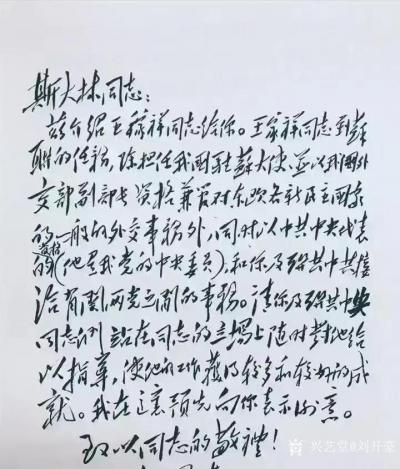 斯大林同志：
兹介绍王稼祥同志给你。王家祥同志到蘇
联的任務，除担任我國駐蘇大使，並以我国外
交部副部长资格兼管对东欧各新民主国家
的一般的外交事務外，同时以中共中央代表
資格
的(他是我党的中央委员)，和你及聯共中央接
洽有関两党之間的事務。请你及聯共中央
同志们站在同志的立場上随时對他给
以指導，使他的工作獲得较多和较好的成
就。我在這預先向你表示谢意。
致以同志的敬禮！
兴艺堂@刘开豪